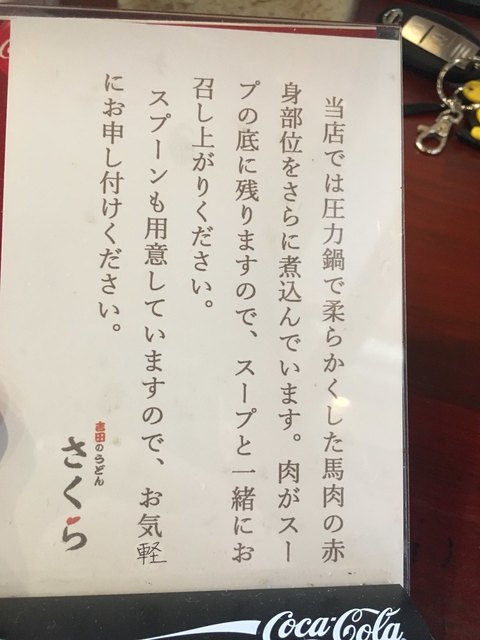 当店では圧力鍋で柔らかくした馬肉の赤
身部位をさらに煮込んでいます。肉がスー
プの底に残りますので、スープと一緒にお
召し上がりください。
スプーンも用意していますので、お気軽
にお申し付けください。
吉田のうどん
さくら
Coca-Cola